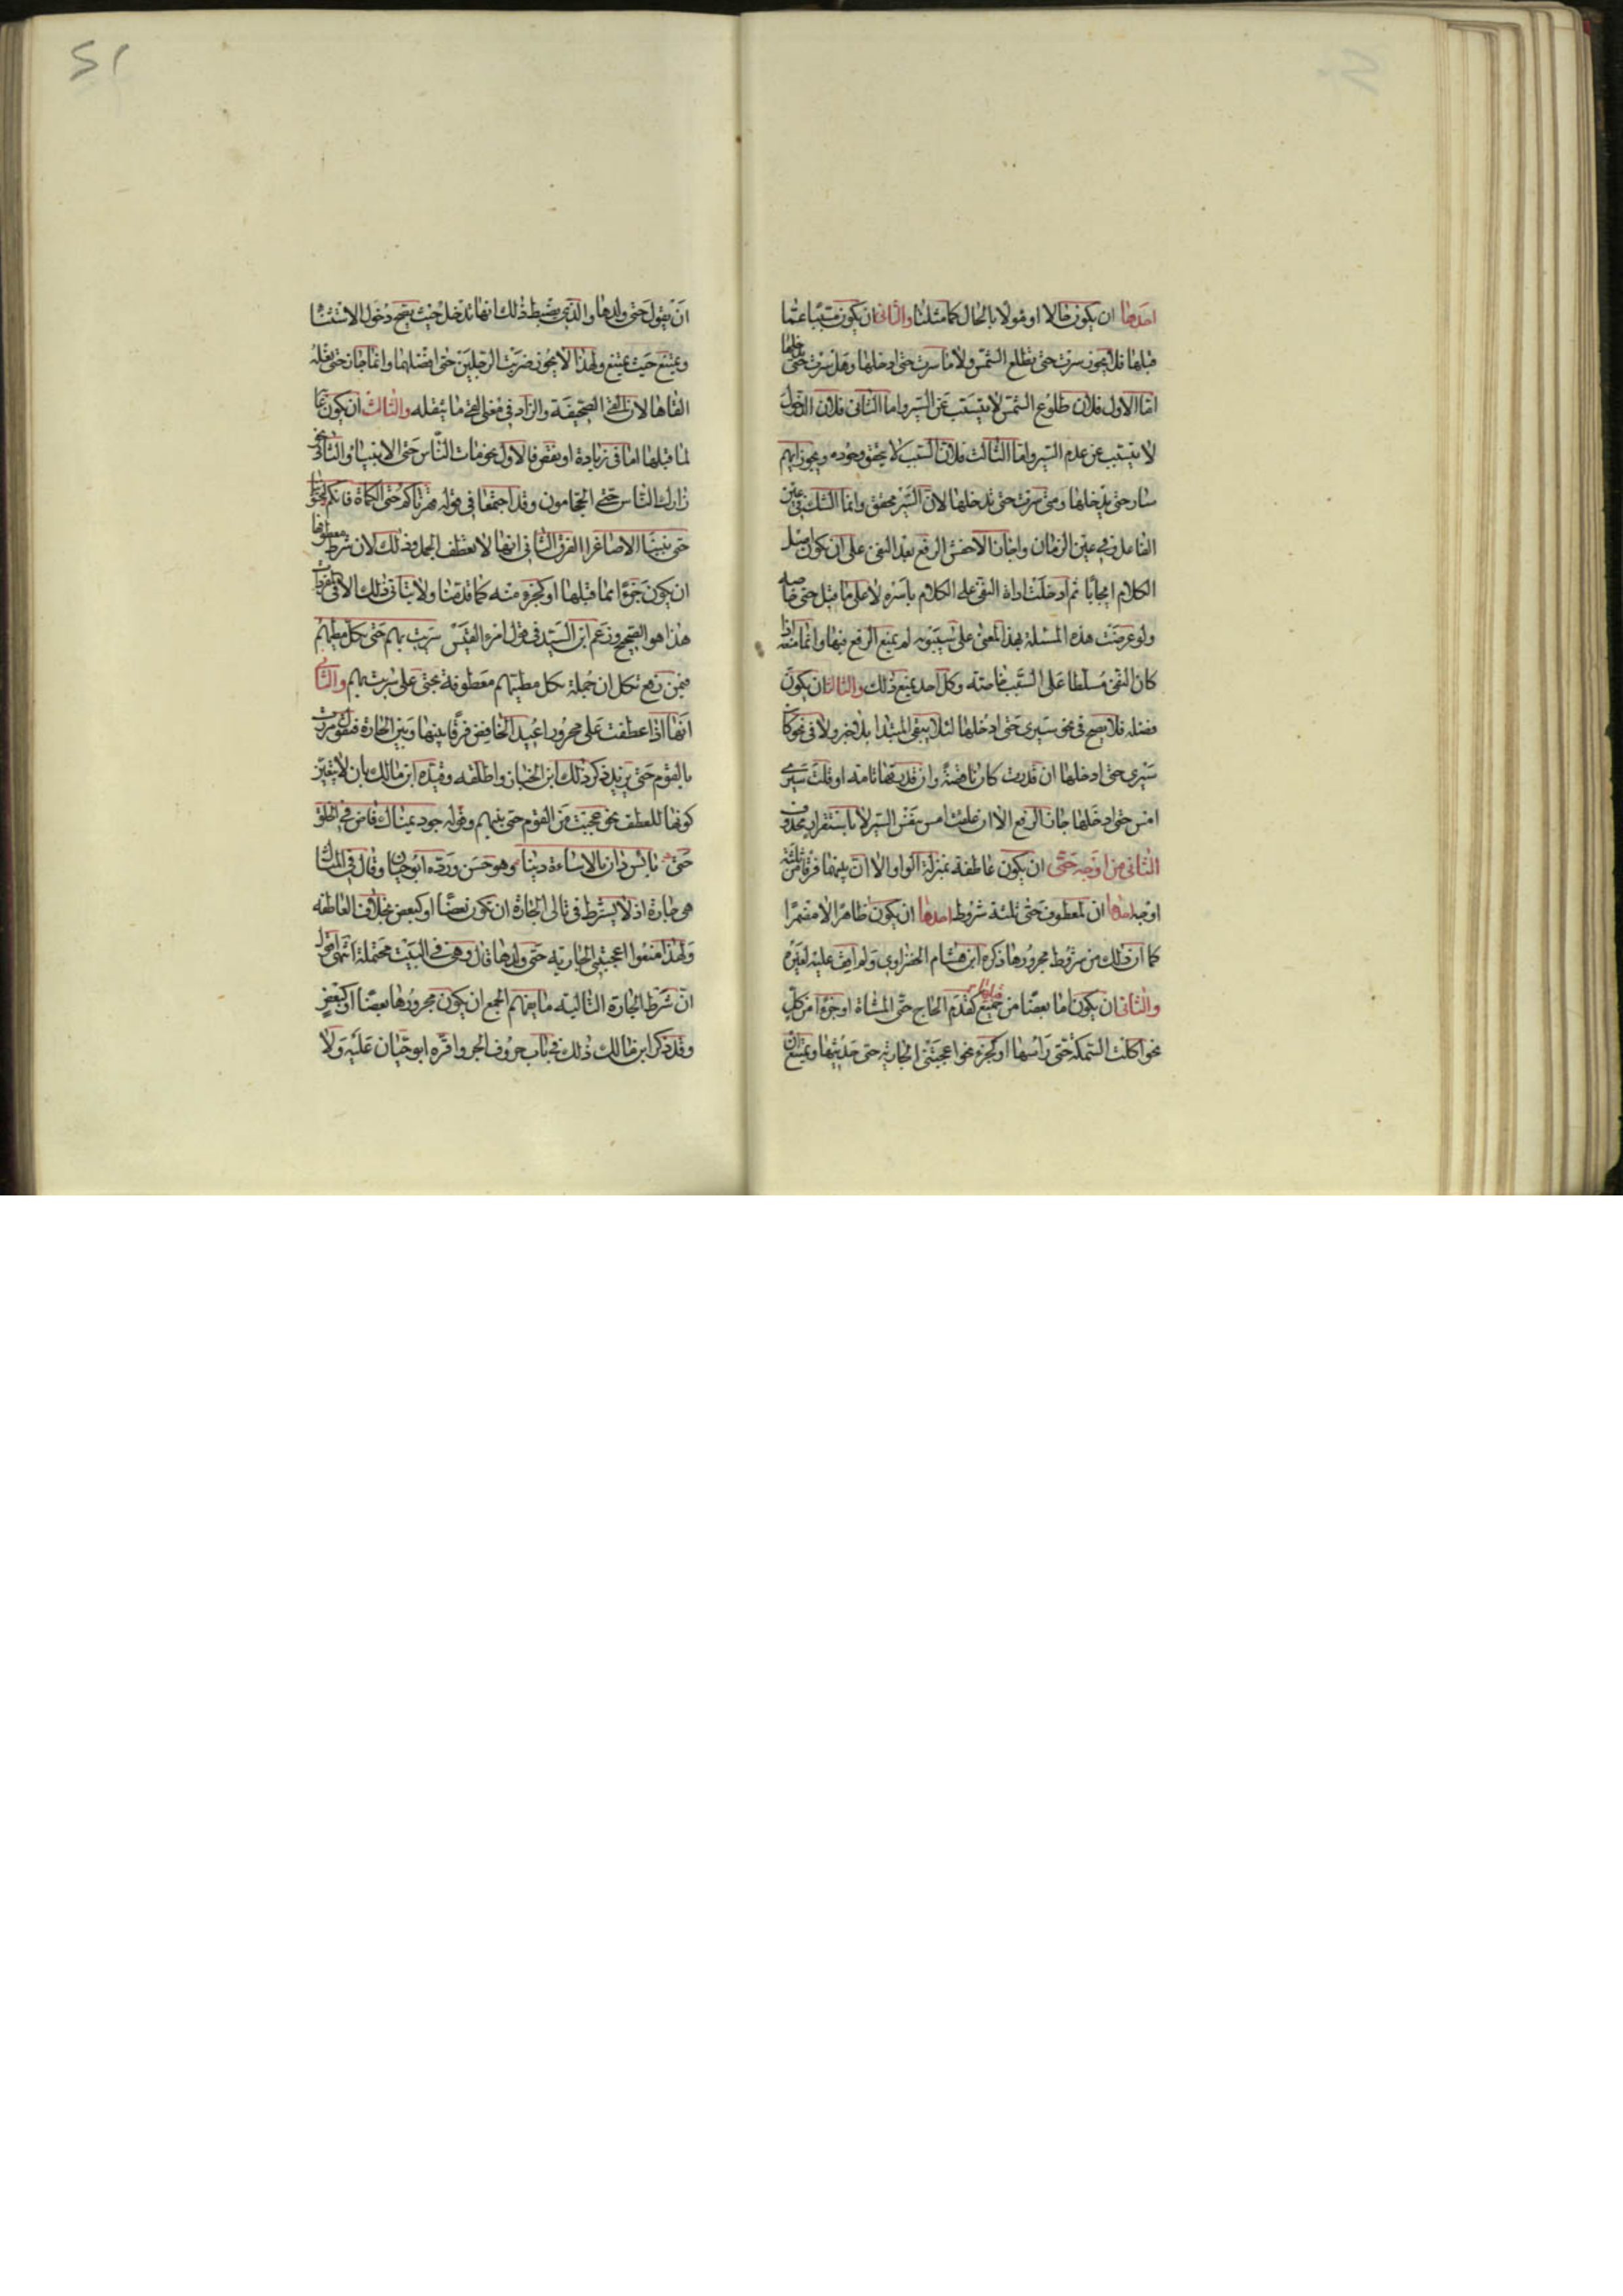 احدها ان يكون حالا او مؤولا بالحال كما مثلنا والثاني ان يكون مسببا عما
قبلها فلا يجوز سرت حتى تطلع الشمس ولا ما سرت حتى ادخلها وهل سرت حتى تدخلها
اما الاول فلان طلوع الشمس لا يتسبب عن السير واما الثاني فلان الدخول
لا يتسبب عن عدم السير واما الثالث فلان السبب لا يتحقق وجوده ويجوز ايهم
سار حتى يدخلها ومتى سرت حتى تدخلها لان السير محقق وانما الشك في عين
الفاعل وفي عين الزمان واجاز الاخفش الرفع بعد النفي على ان يكون اصل
الكلام ايجابا ثم ادخلت اداة النفي على الكلام باسره لا على ما قبل حتى خاصة
ولو عرضت هذه المسئلة بهذا المعنى على سيبويه لم يمنع الرفع فيها وانما منعه اذا
كان النفي مسلطا على السبب خاصة وكل احد يمنع ذلك والثالث ان يكون
فضلة فلا يصح في نحو سيري حتى ادخلها لئلا يبقى المبتدا بلا خبر ولا في نحو كان
سيري حتى ادخلها ان قدرت كان ناقصة وان قدرتها تامة او قلت سيري
امس حتى ادخلها جاز الرفع الا ان علقت امس بنفس السير لا باستقرار محذوف
الثاني من اوجه حتى ان يكون عاطفة بمنزلة الواو الا ان بينهما فرقا من ثلثة
اوجه احدها ان لمعطوف حتى ثلثة شروط احدها ان يكون ظاهرا لا مضمرا
كما ان ذلك من شروط مجرورها ذكره ابن هشام الخضراوي ولم اقف عليه لغيره
والثاني ان يكون اما بعضا من جميع كقدم الحاج حتى المشاة او جزءا من كل
نحو اكلت السمكة حتى راسها او كجزء نحو اعجبتني الجارية حتى حديثها ويمتنع ان
ان يقول حتى ولدها والذي يضبط ذلك انها تدخل حيث يصح دخول الاستثنا
ويمتنع حيث يمتنع ولهذا لا يجوز ضربت الرجلين حتى افضلهما وانما جاز حتى نعله
القاها لان القى الصحيفة والزاد في معنى القى ما يثقله والثالث ان يكون غاية
لما قبلها اما في زيادة او نقص فالاول نحو مات الناس حتى الانبياء والثاني نحو
زارك الناس حتى الحجامون وقد اجتمعا في قوله قهرناكم حتى الكماة فانكم لتخشوننا
حتى بنينا الاصاغرا الفرق الثاني انها لا تعطف الجمل وذلك لان شرط معطوفها
ان يكون جزءا مما قبلها او كجزء منه كما قدمنا ولا يتاتى ذلك الا في المفردات
هذا هو الصحيح وزعم ابن السيد في قول امرء القيس سريت بهم حتى تكل مطيهم
فيمن رفع تكل ان جملة تكل مطيهم معطوفة بحتى على سريت بهم والثالث
انها اذا عطفت على مجرور اعيد الخافض فرقا بينها وبين الجارة فتقول مررت
بالقوم حتى بزيد ذكر ذلك ابن الخباز واطلقه وقيده ابن مالك بان لا يتعين
كونها للعطف نحو عجبت من القوم حتى بنيهم وقوله جود يمناك فاض في الخلق
حتى بائس دان بالاساءة دينا وهو حسن ورده ابو حيان وقال في المثال
هي جارة اذ لا يشترط في تالي الجارة ان تكون بعضا او كبعض بخلاف العاطفة
ولهذا منعوا اعجبتني الجارية حتى ولدها قال وهي في البيت محتملة انتهى اقول
ان شرط الجارة التالية ما يفهم الجمع ان يكون مجرورها بعضا او كبعض
وقد ذكر ابن مالك ذلك في باب حروف الجر واقره ابو حيان عليه ولا